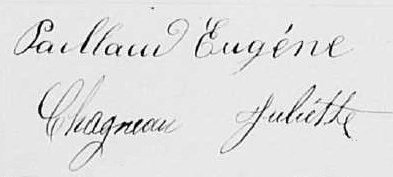 Paillaud Eugéne
Chagneau Juliette